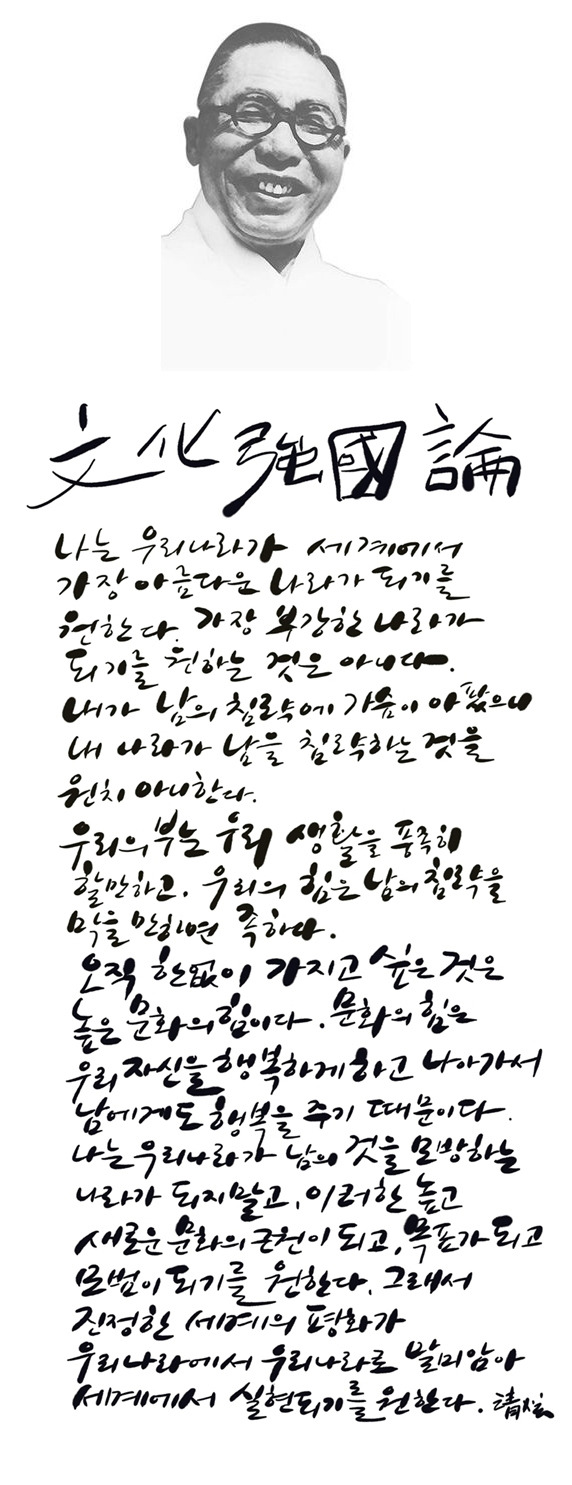 文化強國論
나는 우리나라가 세계에서
가장 아름다운 나라가 되기를
원한다. 가장 부강한 나라가
되기를 원하는 것은 아니다.
내가 남의 침략에 가슴이 아팠으니
내 나라가 남을 침략하는 것을
원치 아니한다.
우리의 부는 우리 생활을 풍족히
할만하고, 우리의 힘은 남의 침략을
막을 만하면 족하다.
오직 한없이 가지고 싶은 것은
높은 문화의 힘이다. 문화의 힘은
우리 자신을 행복하게 하고 나아가서
남에게도 행복을 주기 때문이다.
나는 우리나라가 남의 것을 모방하는
나라가 되지말고, 이러한 높고
새로운 문화의 근원이 되고, 목표가 되고
모범이 되기를 원한다. 그래서
진정한 세계의 평화가
우리나라에서 우리나라로 말미암아
세계에서 실현되기를 원한다.